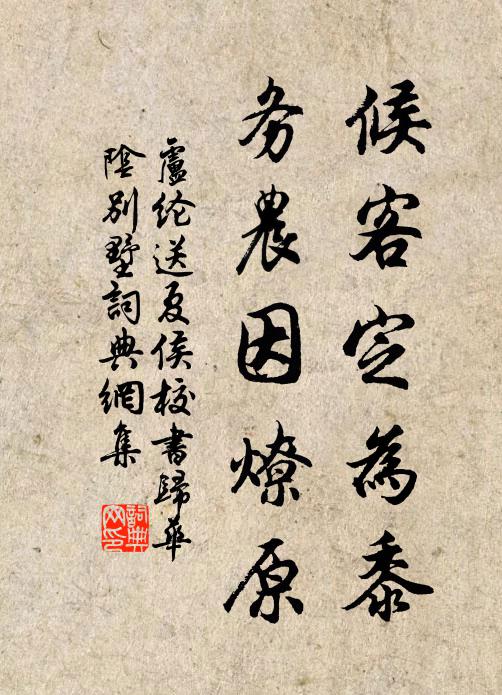 候客定為黍
务農因燎原
盧纶送夏侯校書歸華
陰別墅詞典網集
詞典
网印